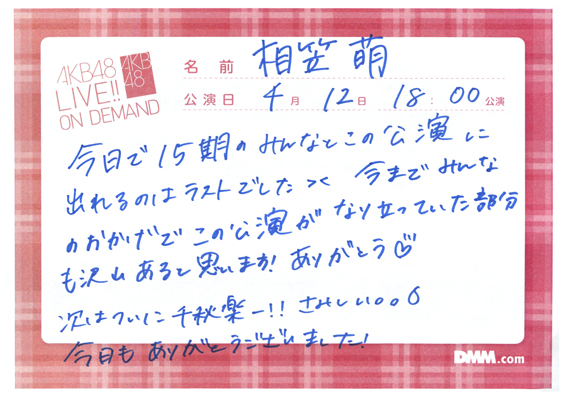 AKB48
LIVE!!
ON DEMAND
AKB
48
名前 相笠萌
公演日 4月12日 18:00公演
今日で15期のみんなとこの公演に
出れるのはラストでした >< 今までみんな
のおかげでこの公演がなり立っていた部分
も沢山あると思います! ありがとう♡
次はついに千秋楽ー!! さみしい。。
今日もありがとうございました!
DMM.com